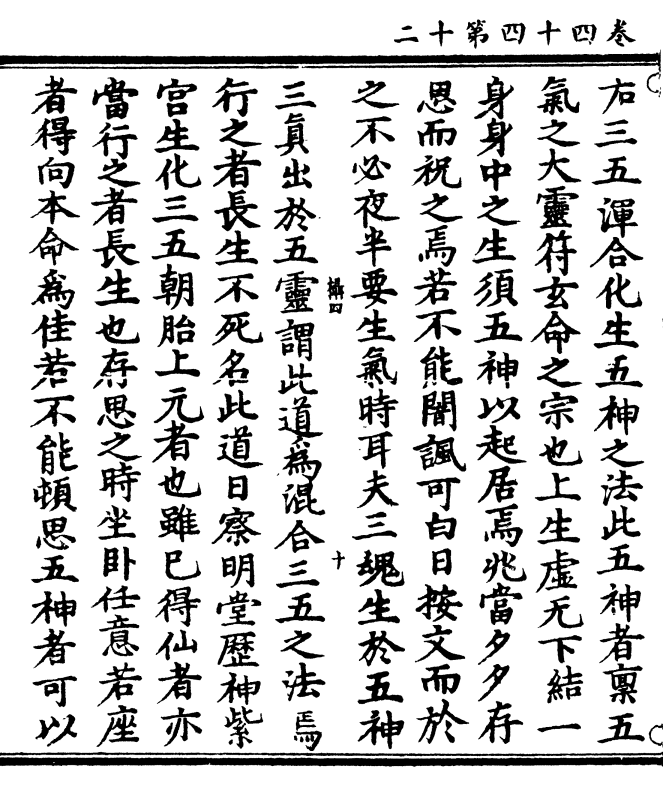 卷四十四第十二
右三五渾合化生五神之法此五神者禀五
氣之大靈符玄命之宗也上生虛无下結一
身身中之生須五神以起居焉兆當夕夕存
思而祝之焉若不能闇諷可白日按文而於
之不必夜半要生氣時耳夫三魂生於五神
攝四
十
三眞出於五靈謂此道爲混合三五之法焉
行之者長生不死名此道日察明堂歷神紫
宮生化三五朝胎上元者也雖已得仙者亦
當行之者長生也存思之時坐卧任意若座
者得向本命爲佳若不能頓思五神者可以